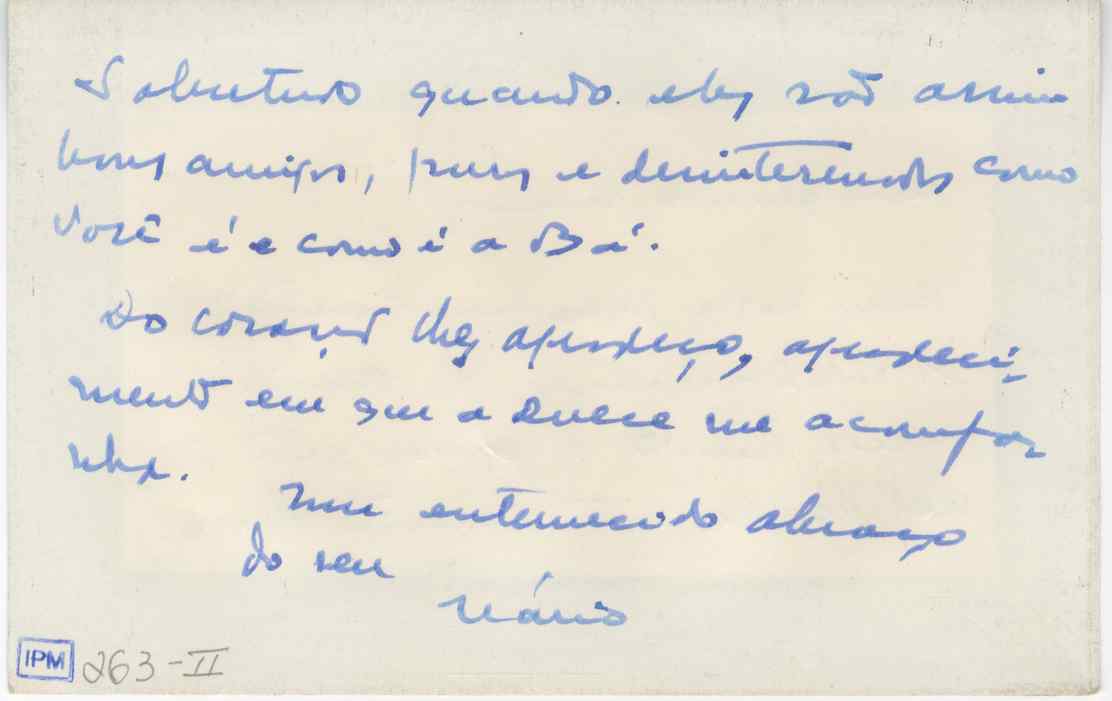 Sobretudo quando eles são assim
bons amigos, puros e desinteressados como
você é e como é a Bá.
Do coração lhes agradeço, agradeci-
mento em que a Dulce me acompa
nha.
Num enternecido abraço
do seu
Mário
IPM 263-II